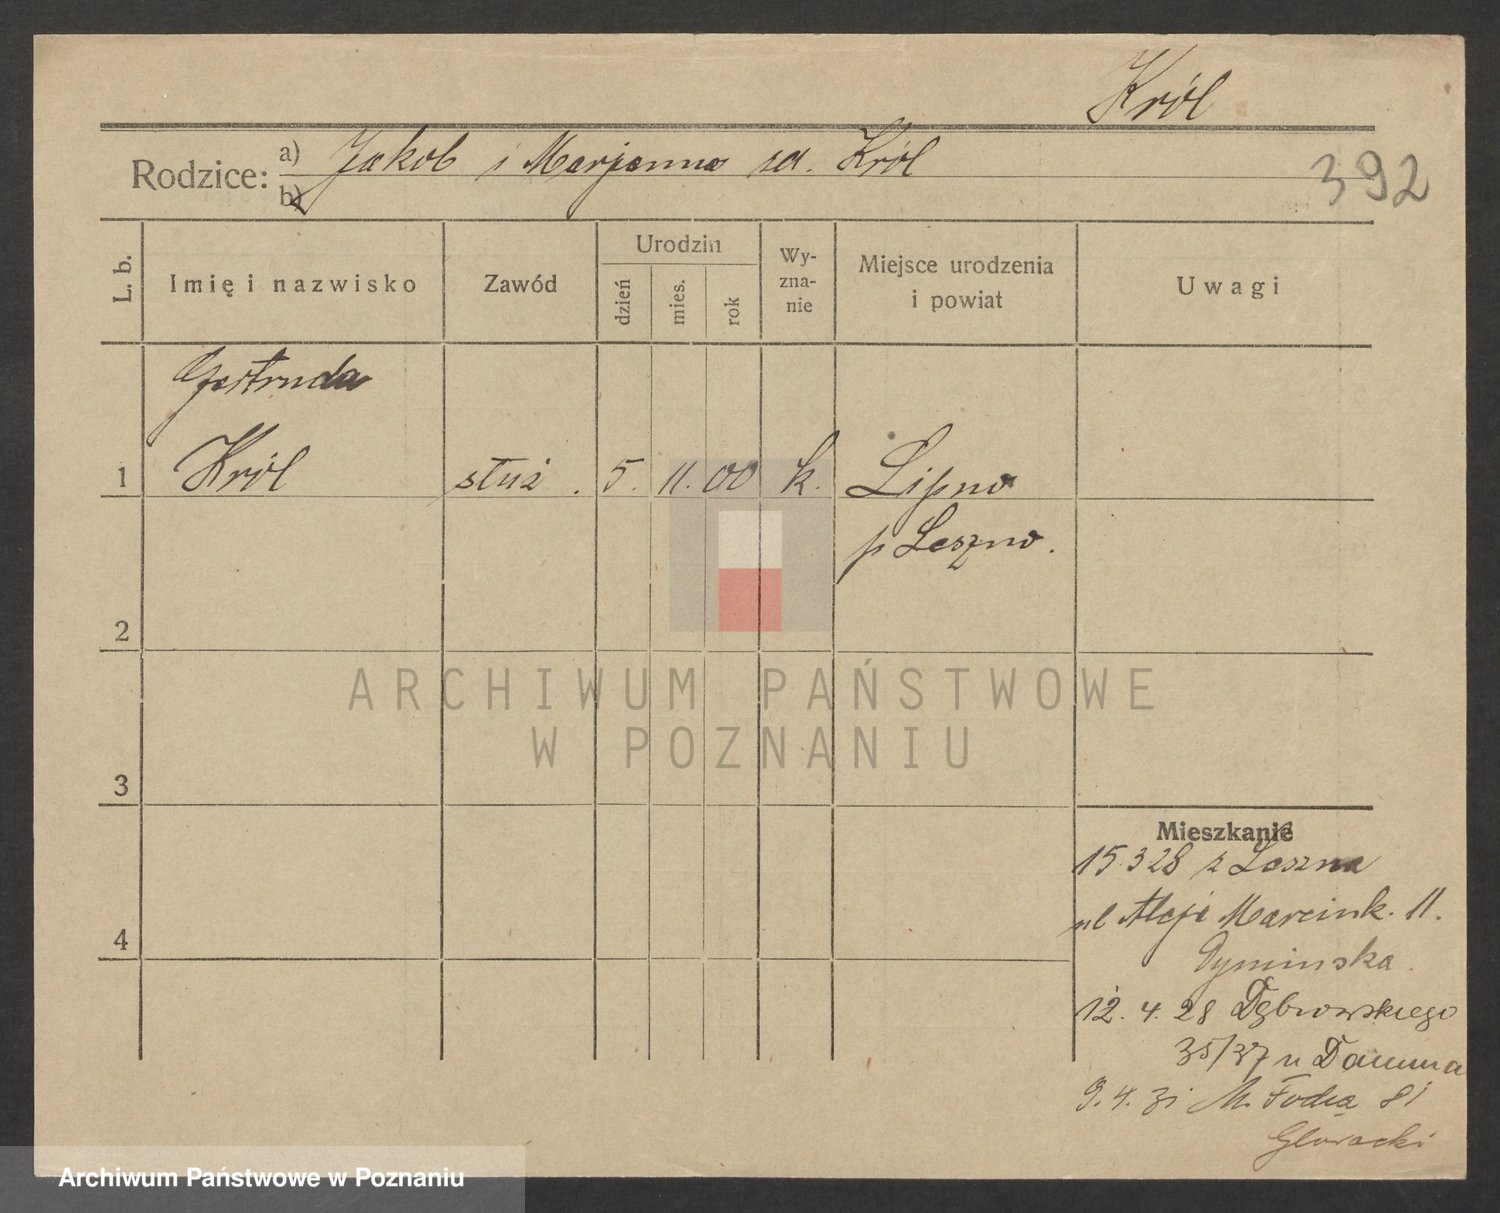 Król
Rodzice:
a) Jakob i Marjanna
b)
Król
392
L. b.
Imię i nazwisko
Zawód
Urodzin
dzień
mies.
rok
Wy-
zna-
nie
Miejsce urodzenia
i powiat
Uwagi
Gertruda
1 Król służ. 5. 11. 00 k. Lipno
p Leszno.
2
3
4
ARCHIWUM PAŃSTWOWE
W POZNANIU
Mieszkanie
15.3 28 z Leszna
ul Aleje Marcink. 11.
Dymińska.
12. 4. 28 Dąbrowskiego
35/37 u Damma
9. 4. 31 M. Focha 81
Głowacki
Archiwum Państwowe w Poznaniu